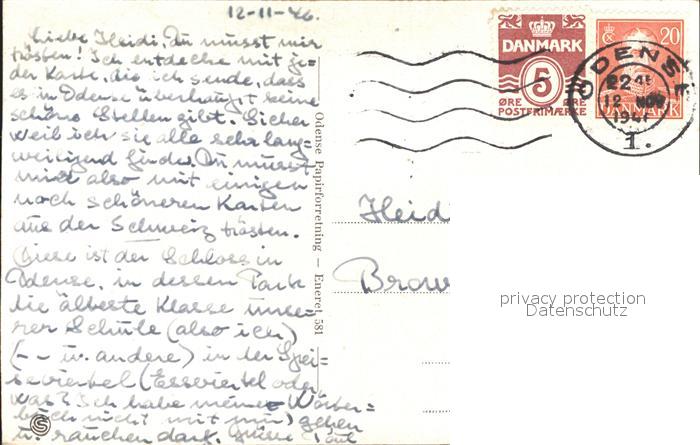 12-11-46.
Liebe Heidi, Du musst mir
trösten! Ich entdecke mit je=
der Karte, die ich sende, dass
es in Odense überhaupt keine
schöne Stellen gibt. Sicher
weil ich sie alle sehr lang=
weiligend finde. Du musst
mir also mit einigen
noch schöneren Karten
aus der Schweiz trösten.
Diese ist der Schloss in
Odense, in dessen Park
die älteste Klasse unse=
rer Schule (also ich)
(-- u. andere) in der Spei=
seviertel (Essviertel oder
was? Ich habe meine Wörter=
buch nicht mit mir) gehen
u. rauchen darf. Grüsse Paul
Odense Papirforretning — Eneret 581
DANMARK
5
ØRE ØRE
POSTFRIMÆRKE
20
DANMARK
ODENSE
12 NOV
1.
Heidi
Brow
privacy protection
Datenschutz